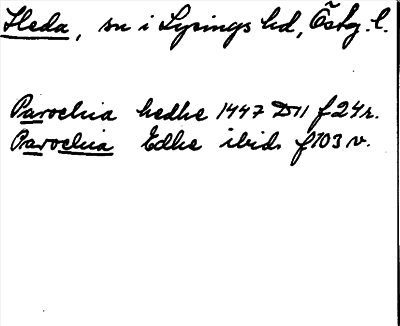 Heda, sn i Lysings hd, Östg. l.
Parochia hedhe 1447 D11 f 24 r.
Parochia Edhe ibid. f 103 v.